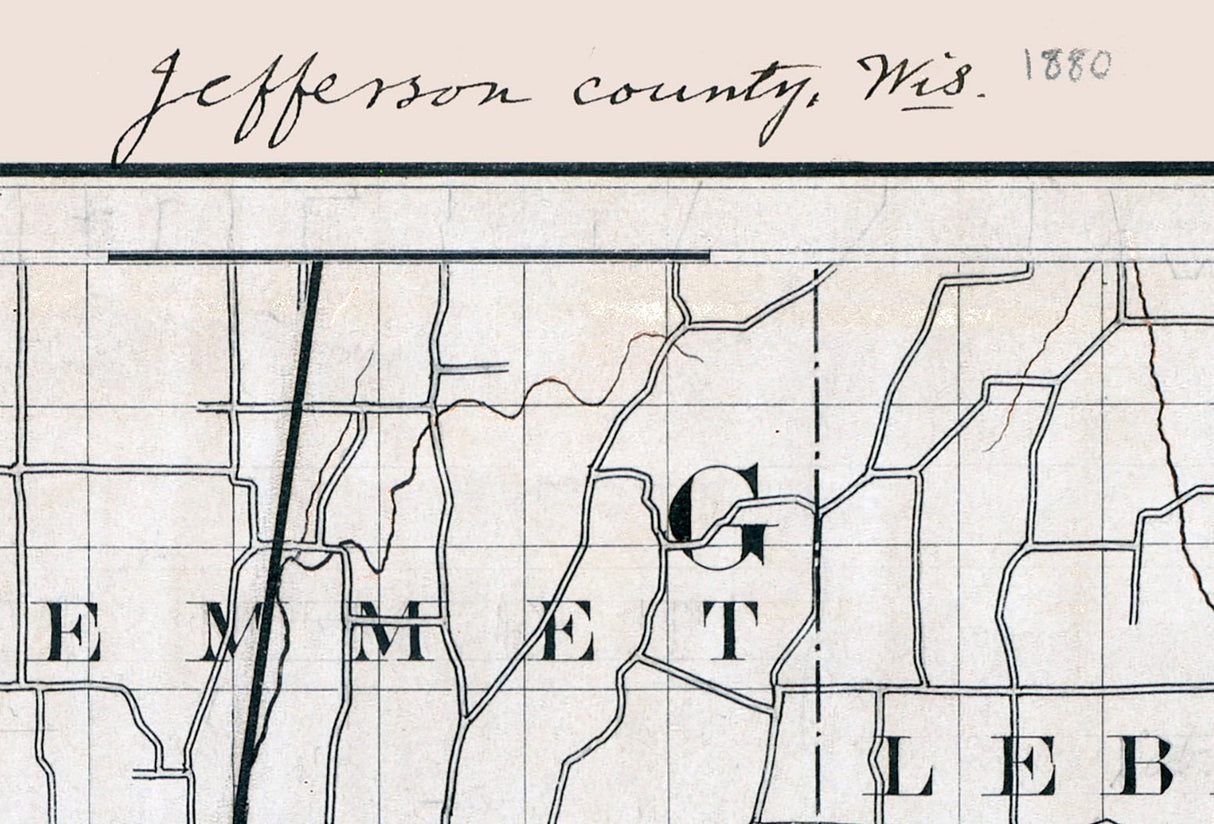 Jefferson county, Wis. 1880
G
EMMET
LEB